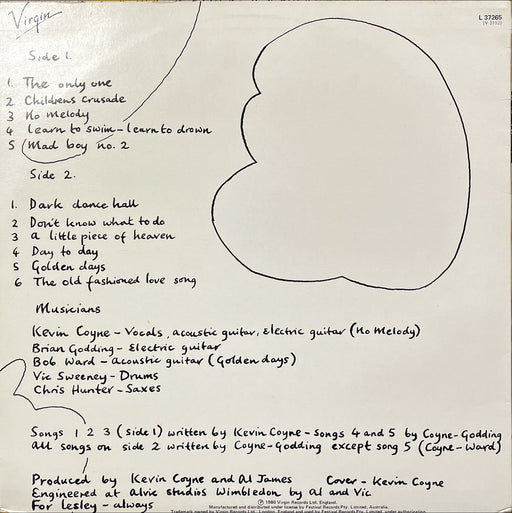 Virgin
L 37265
(V 2152)
Side 1.
1. The only one
2 Childrens crusade
3 No melody
4 learn to swim - learn to drown
5 Mad boy no. 2
Side 2.
1. Dark dance hall
2 Don't know what to do
3 a little piece of heaven
4 Day to day
5 Golden days
6 The old fashioned love song
Musicians
Kevin Coyne - Vocals, acoustic guitar, electric guitar (No Melody)
Brian Godding - Electric guitar
Bob Ward - acoustic guitar (Golden days)
Vic Sweeney - Drums
Chris Hunter - Saxes
Songs 1 2 3 (side 1) written by Kevin Coyne - songs 4 and 5 by Coyne-Godding
All songs on side 2 written by Coyne-Godding except song 5 (Coyne-Ward)
Produced by Kevin Coyne and Al James Cover - Kevin Coyne
Engineered at alvic studios Wimbledon by al and Vic
For lesley - always
℗ 1980 Virgin Records Ltd. England.
Manufactured and distributed under license by Festival Records Pty. Limited, Australia.
Trademark owned by Virgin Records Ltd., London, England and used by Festival Records Pty. Limited, under authorization.